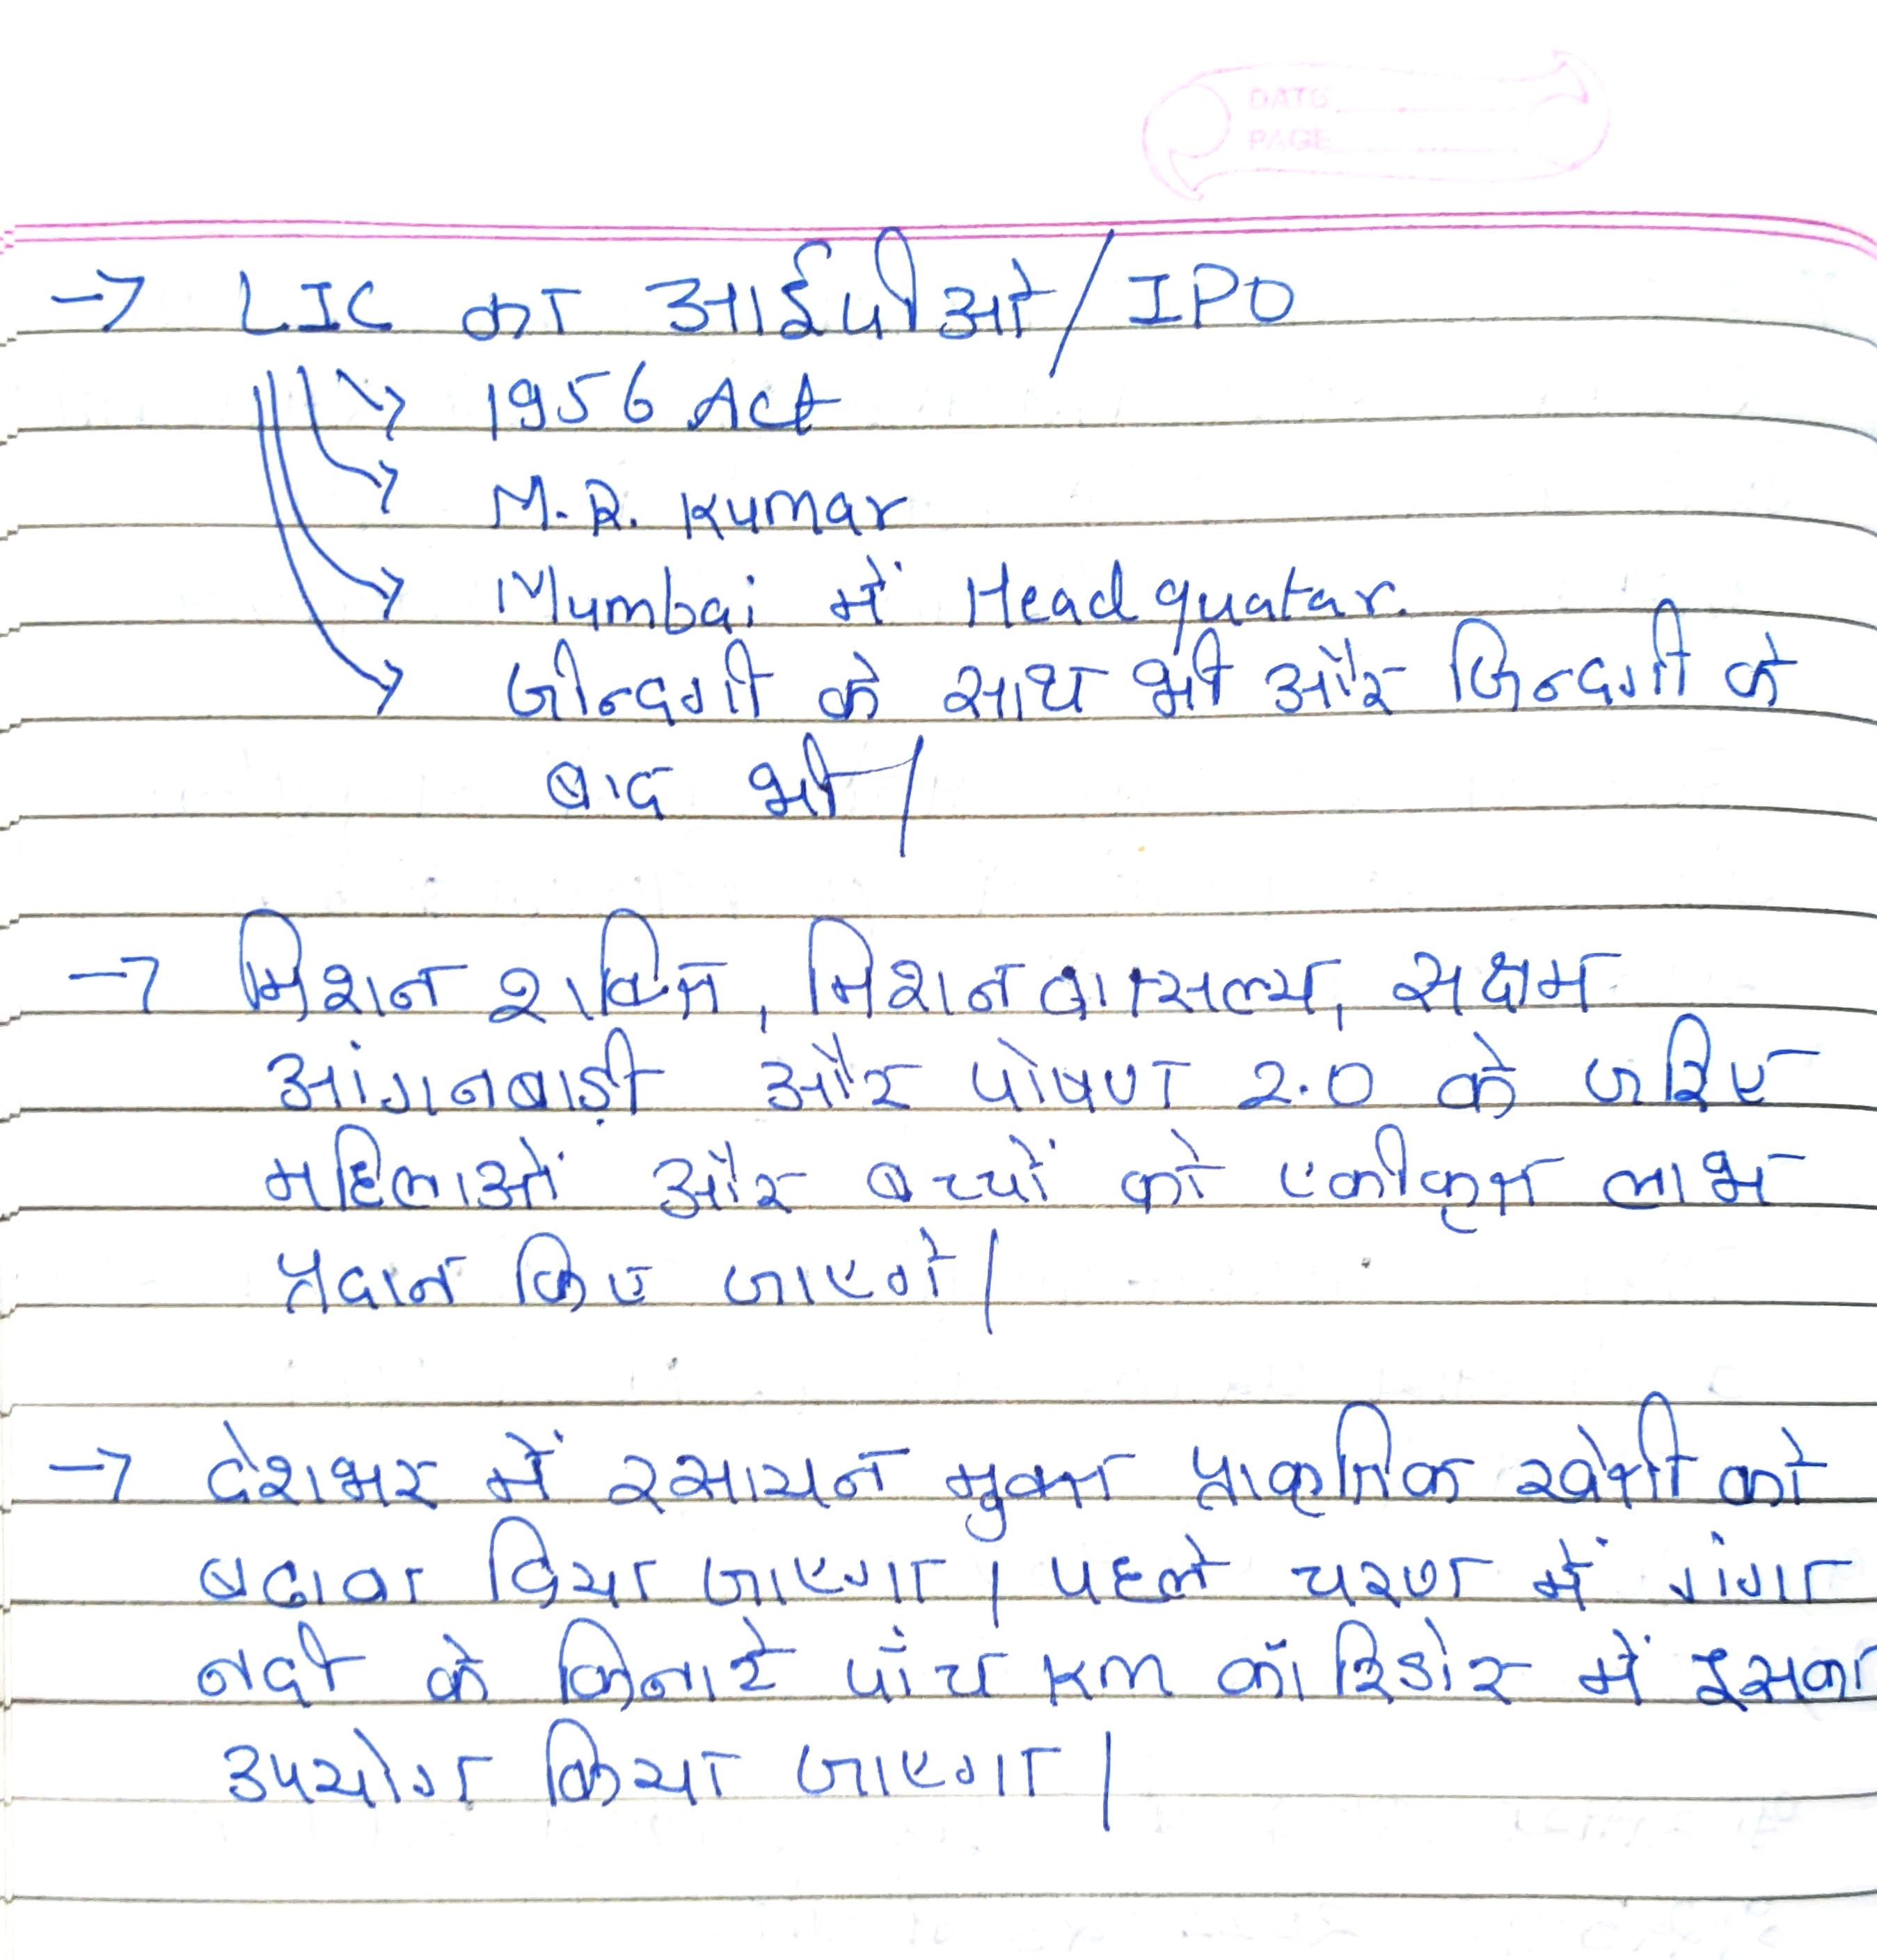 DATE
PAGE
→ LIC का आईपीओ/IPO
→ 1956 Act
→ M.R. Kumar
→ Mumbai में Headquatar.
→ जीन्दगी के साथ भी और जिन्दगी के
बाद भी।
→ मिशन शक्ति, मिशन वात्सल्य, सक्षम
आंगनबाड़ी और पोषण 2.0 के जरिए
महिलाओं और बच्चों को एकीकृत लाभ
प्रदान किए जाएगे।
→ देशभर में रसायन मुक्त प्राकृतिक खेती को
बढावा दिया जाएगा। पहले चरण में गंगा
नदी के किनारे पाँच KM कॉरिडोर में इसका
उपयोग किया जाएगा।